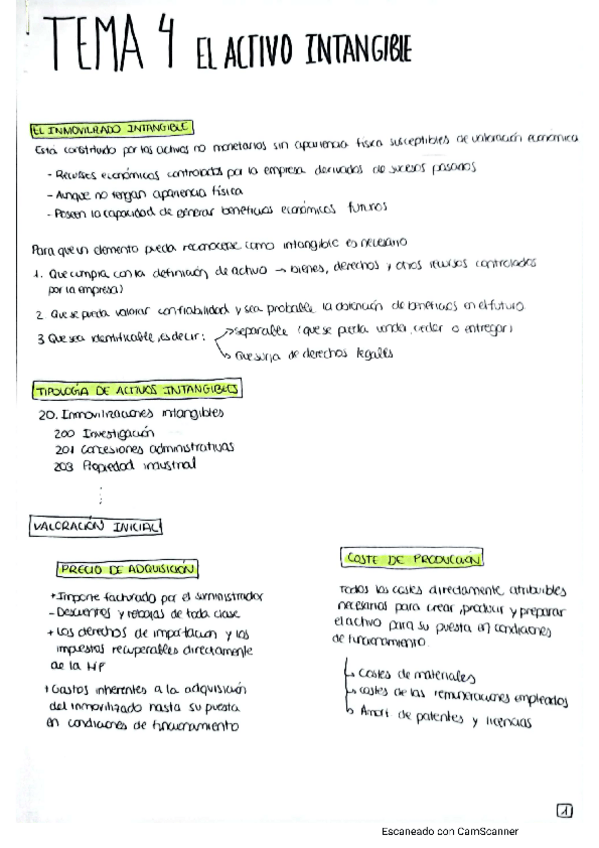 TEMA 4 EL ACTIVO INTANGIBLE
EL INMOVILIZADO INTANGIBLE
Está constituido por los activos no monetarios sin apariencia física susceptibles de valoración económica
- Recursos económicos controlados por la empresa derivados de sucesos pasados
- Aunque no tengan apariencia física
- Poseen la capacidad de generar beneficios económicos futuros
Para que un elemento pueda reconocerse como intangible es necesario
1. Que cumpla con la definición de activo → bienes, derechos y otros recursos controlados
por la empresa)
2 Que se pueda valorar con fiabilidad y sea probable la obtención de beneficios en el futuro
3 Que sea identificable, es decir: → separable (que se pueda vender, ceder o entregar)
↳ Que surja de derechos legales
TIPOLOGÍA DE ACTIVOS INTANGIBLES
20. Inmovilizaciones intangibles
200 Investigación
201 Concesiones administrativas
203 Propiedad industrial
VALORACIÓN INICIAL
PRECIO DE ADQUISICIÓN
+ Importe facturado por el suministrador
- Descuentos y rebajas de toda clase
+ Los derechos de importación y los
impuestos recuperables directamente
de la HP
+ Gastos inherentes a la adquisición
del inmovilizado hasta su puesta
en condiciones de funcionamiento
COSTE DE PRODUCCIÓN
Todos los costes directamente atribuibles
necesarios para crear, producir y preparar
el activo para su puesta en condiciones
de funcionamiento.
↳ Costes de materiales
↳ costes de las remuneraciones empleados
↳ Amort de patentes y licencias
1
Escaneado con CamScanner